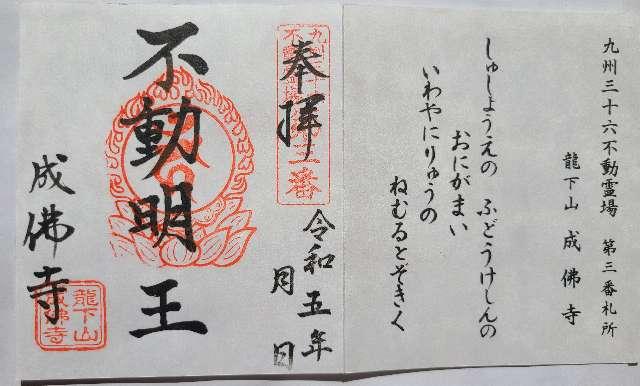 九州三十六不動霊場 第三番札所
龍下山 成佛寺
しゅしょうえの ふどうけしんの
おにがまい
いわやにりゅうの
ねむるとぞきく
奉拝
九州三十六
不動霊場第三番
令和五年
月 日
不動明王
成佛寺
龍下山
成佛寺